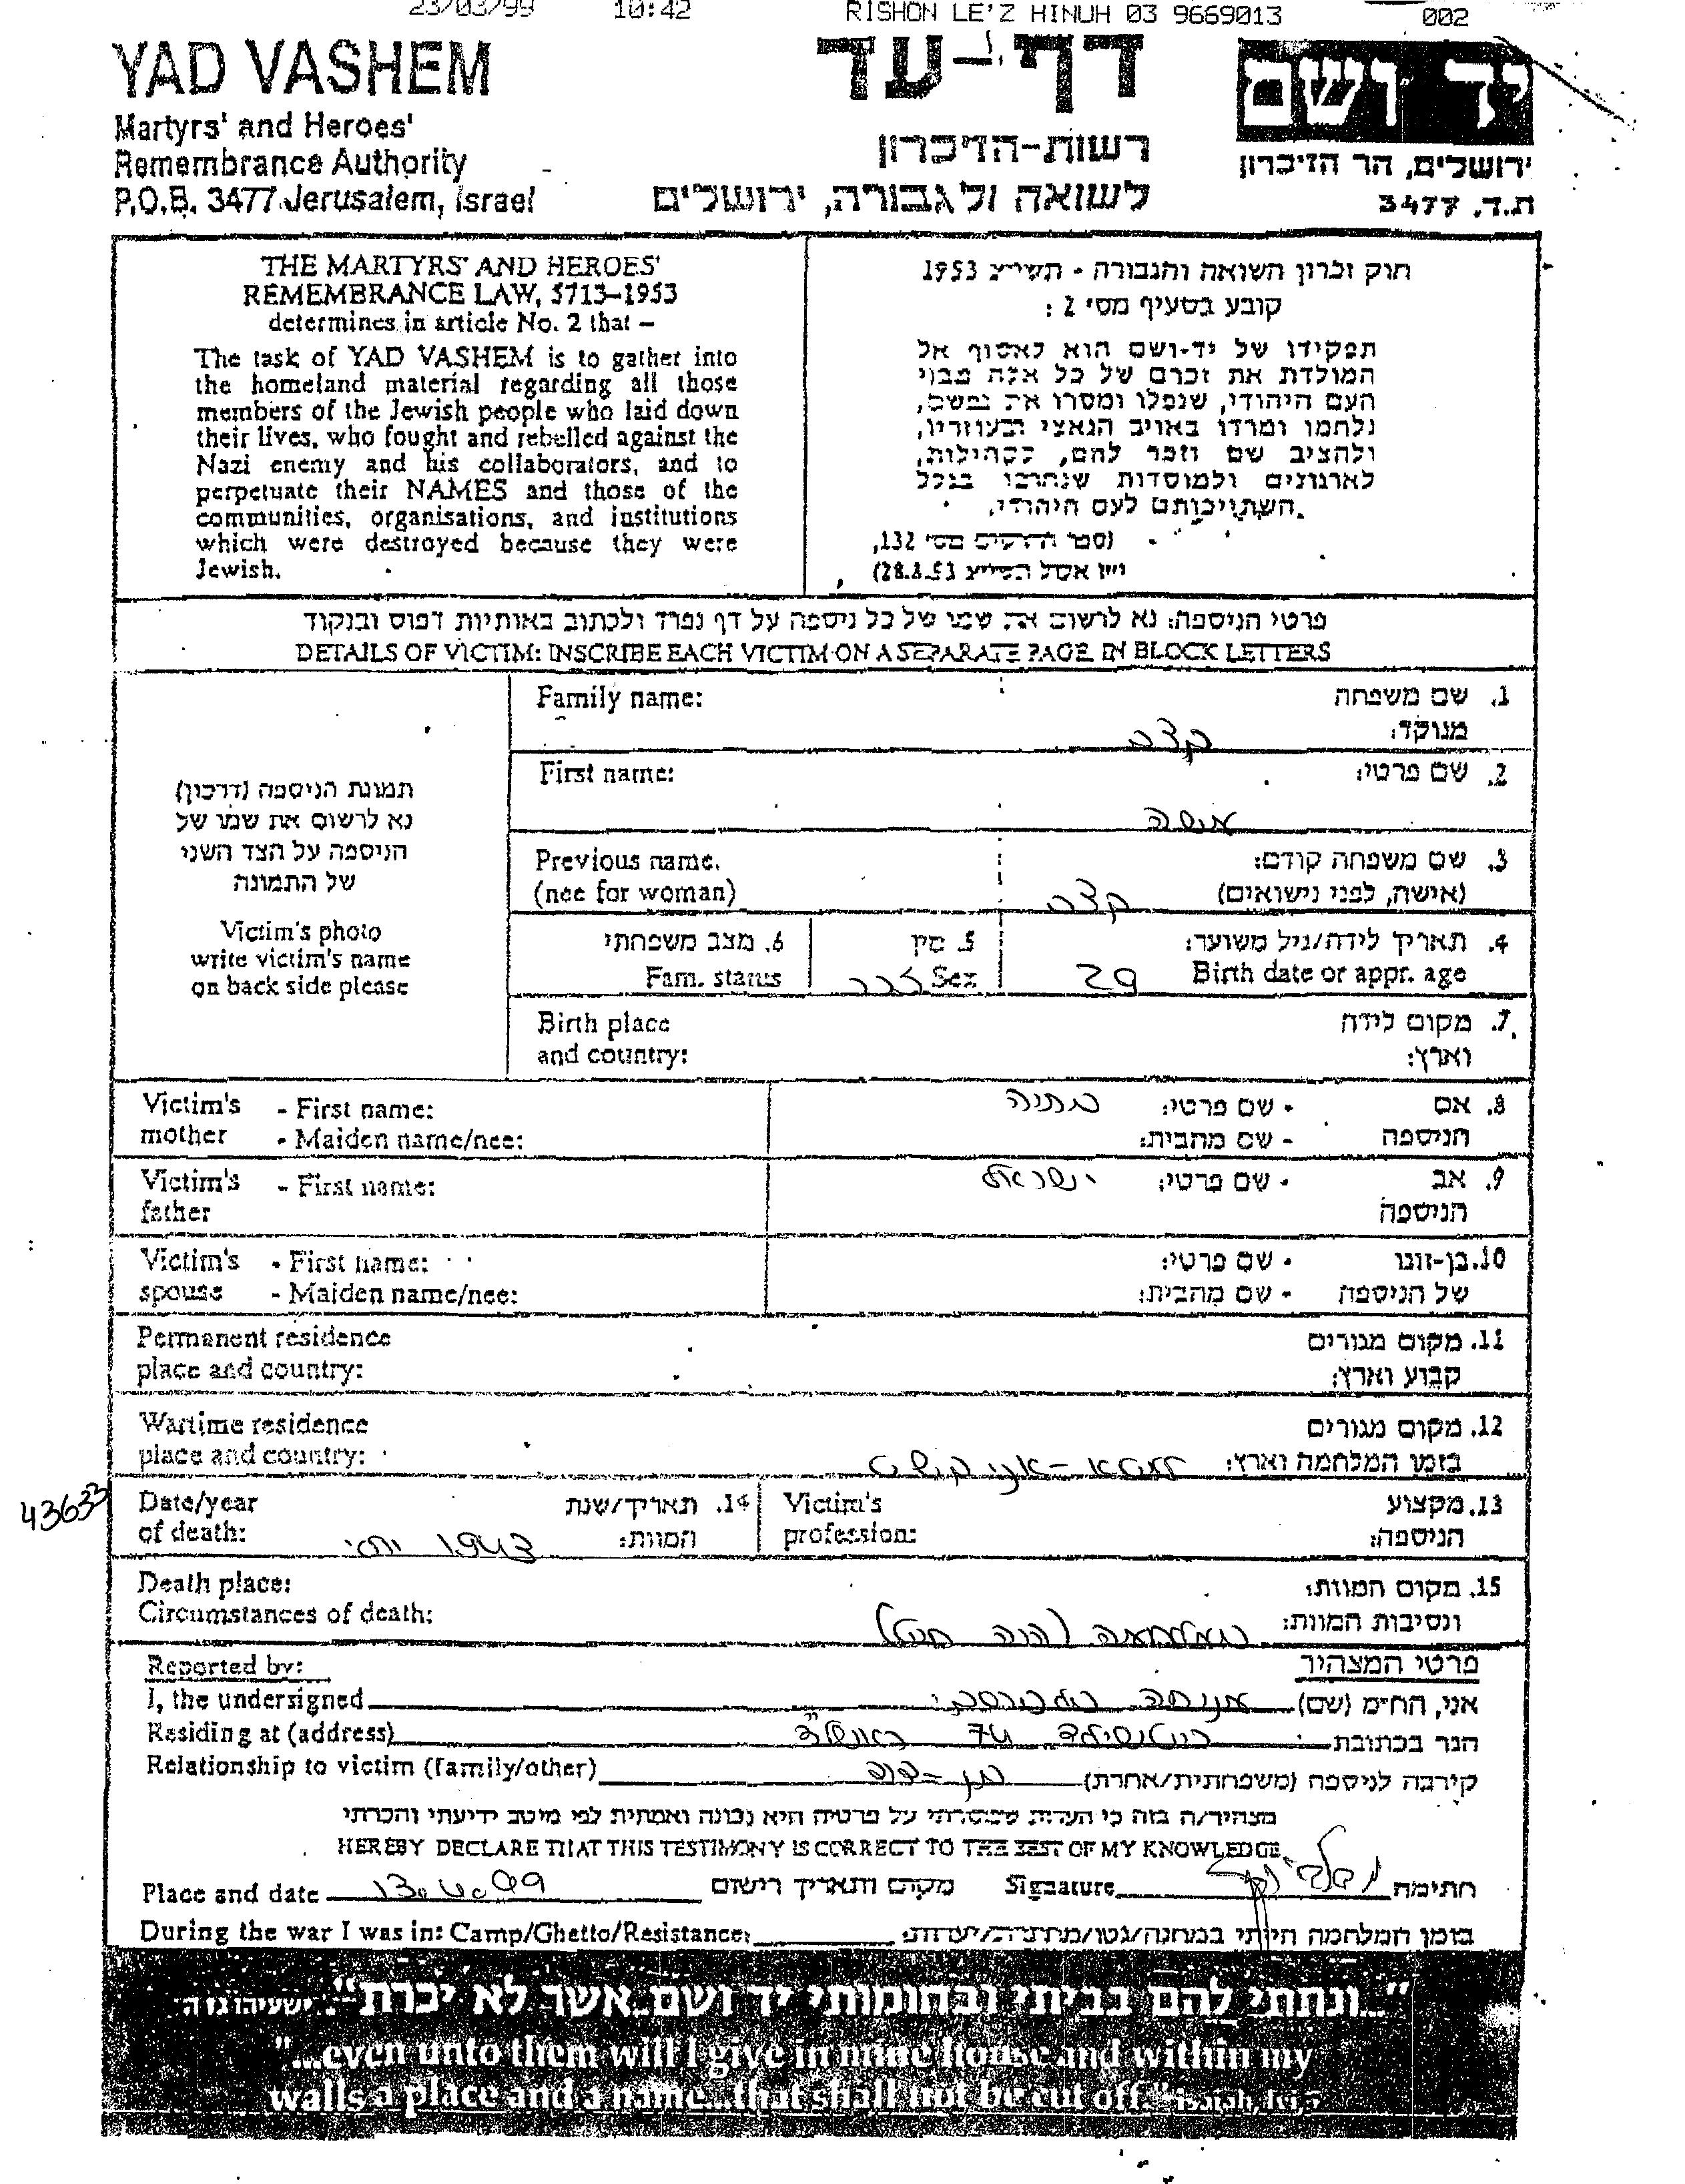 23/03/99 10:42 RISHON LE'Z HINUH 03 9669013 002
YAD VASHEM
Martyrs' and Heroes'
Remembrance Authority
P.O.B. 3477 Jerusalem, Israel
דף-עד
רשות-הזיכרון
לשואה ולגבורה, ירושלים
יד ושם
ירושלים, הר הזיכרון
ת.ד. 3477
THE MARTYRS' AND HEROES'
REMEMBRANCE LAW, 5713–1953
determines in article No. 2 that –
The task of YAD VASHEM is to gather into
the homeland material regarding all those
members of the Jewish people who laid down
their lives, who fought and rebelled against the
Nazi enemy and his collaborators, and to
perpetuate their NAMES and those of the
communities, organisations, and institutions
which were destroyed because they were
Jewish.
חוק זכרון השואה והגבורה - תשי״ג 1953
קובע בסעיף מס' 2 :
תפקידו של יד-ושם הוא לאסוף אל
המולדת את זכרם של כל אלה מבני
העם היהודי, שנפלו ומסרו את נפשם,
נלחמו ומרדו באויב הנאצי ובעוזריו,
ולהציב שם וזכר להם, לקהילות,
לארגונים ולמוסדות שנחרבו בגלל
השתייכותם לעם היהודי.
(ספר החוקים מס' 132,
28.8.53)
פרטי הניספה: נא לרשום את שמו של כל ניספה על דף נפרד ולכתוב באותיות דפוס ובנקוד
DETAILS OF VICTIM: INSCRIBE EACH VICTIM ON A SEPARATE PAGE IN BLOCK LETTERS
תמונת הניספה (דרכון)
נא לרשום את שמו של
הניספה על הצד השני
של התמונה
Victim's photo
write victim's name
on back side please
Family name: 1. שם משפחה
מנוקד: קצב
First name: 2. שם פרטי:
Previous name. 3. שם משפחה קודם:
(nee for woman) (אישה, לפני נישואים) קצב
4. תאריך לידה/גיל משוער: 5. מין 6. מצב משפחתי
Birth date or appr. age 29 Sex זכר Fam. status
Birth place 7. מקום לידה
and country: וארץ:
Victim's - First name: 8. אם - שם פרטי:
mother - Maiden name/nee: הניספה - שם מהבית:
Victim's - First name: 9. אב - שם פרטי: ישראל
father הניספה
Victim's - First name: 10. בן-זוגו - שם פרטי:
spouse - Maiden name/nee: של הניספה - שם מהבית:
Permanent residence 11. מקום מגורים
place and country: קבוע וארץ:
Wartime residence 12. מקום מגורים
place and country: בזמן המלחמה וארץ:
43633
Date/year 14. תאריך/שנת Victim's 13. מקצוע
of death: המוות: 1943 profession: הניספה:
Death place: 15. מקום המוות:
Circumstances of death: ונסיבות המוות: במלחמה (היה חייל)
Reported by: פרטי המצהיר
I, the undersigned אני, החימ (שם)
Residing at (address) הגר בכתובת רוטשילד 74 ראשל״צ
Relationship to victim (family/other) קירבה לניספה (משפחתית/אחרת) בן-דוד
מצהיר/ה בזה כי העדות שמסרתי על פרטיה היא נכונה ואמתית לפי מיטב ידיעתי והכרתי
HEREBY DECLARE THAT THIS TESTIMONY IS CORRECT TO THE BEST OF MY KNOWLEDGE.
Place and date 13.4.99 מקום ותאריך רישום Signature חתימה
During the war I was in: Camp/Ghetto/Resistance: בזמן המלחמה הייתי במחנה/גטו/מחתרת/יערות:
"...ונתתי להם בביתי ובחומותי יד ושם...אשר לא יכרת" ישעיהו נו ה
"...even unto them will I give in mine house and within my
walls a place and a name...that shall not be cut off." isaiah, lvi, 5